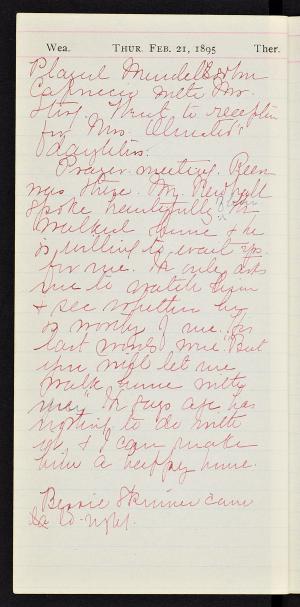 Wea. THUR. FEB. 21, 1895 Ther.
Played Mendelssohn
Capriccio with Mr.
Went to reception
for Mrs. Olmsted's
daughters.
Prayer-meeting. Been
was there. Mr.
spoke beautifully
walked home & he
is willing to wait
for me. He only asks
me to watch him
& see whether he
is worthy of me. His
last words were "But
you will let me
walk home with
you." He says age has
nothing to do with
it & I can make
him a happy home.
Bessie Skinner came
to-night.